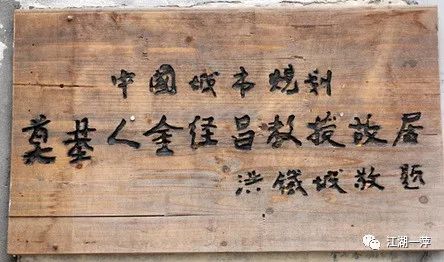 中國城市规划
奠基人金经昌教授故居
洪鐵城敬题
江湖一萍